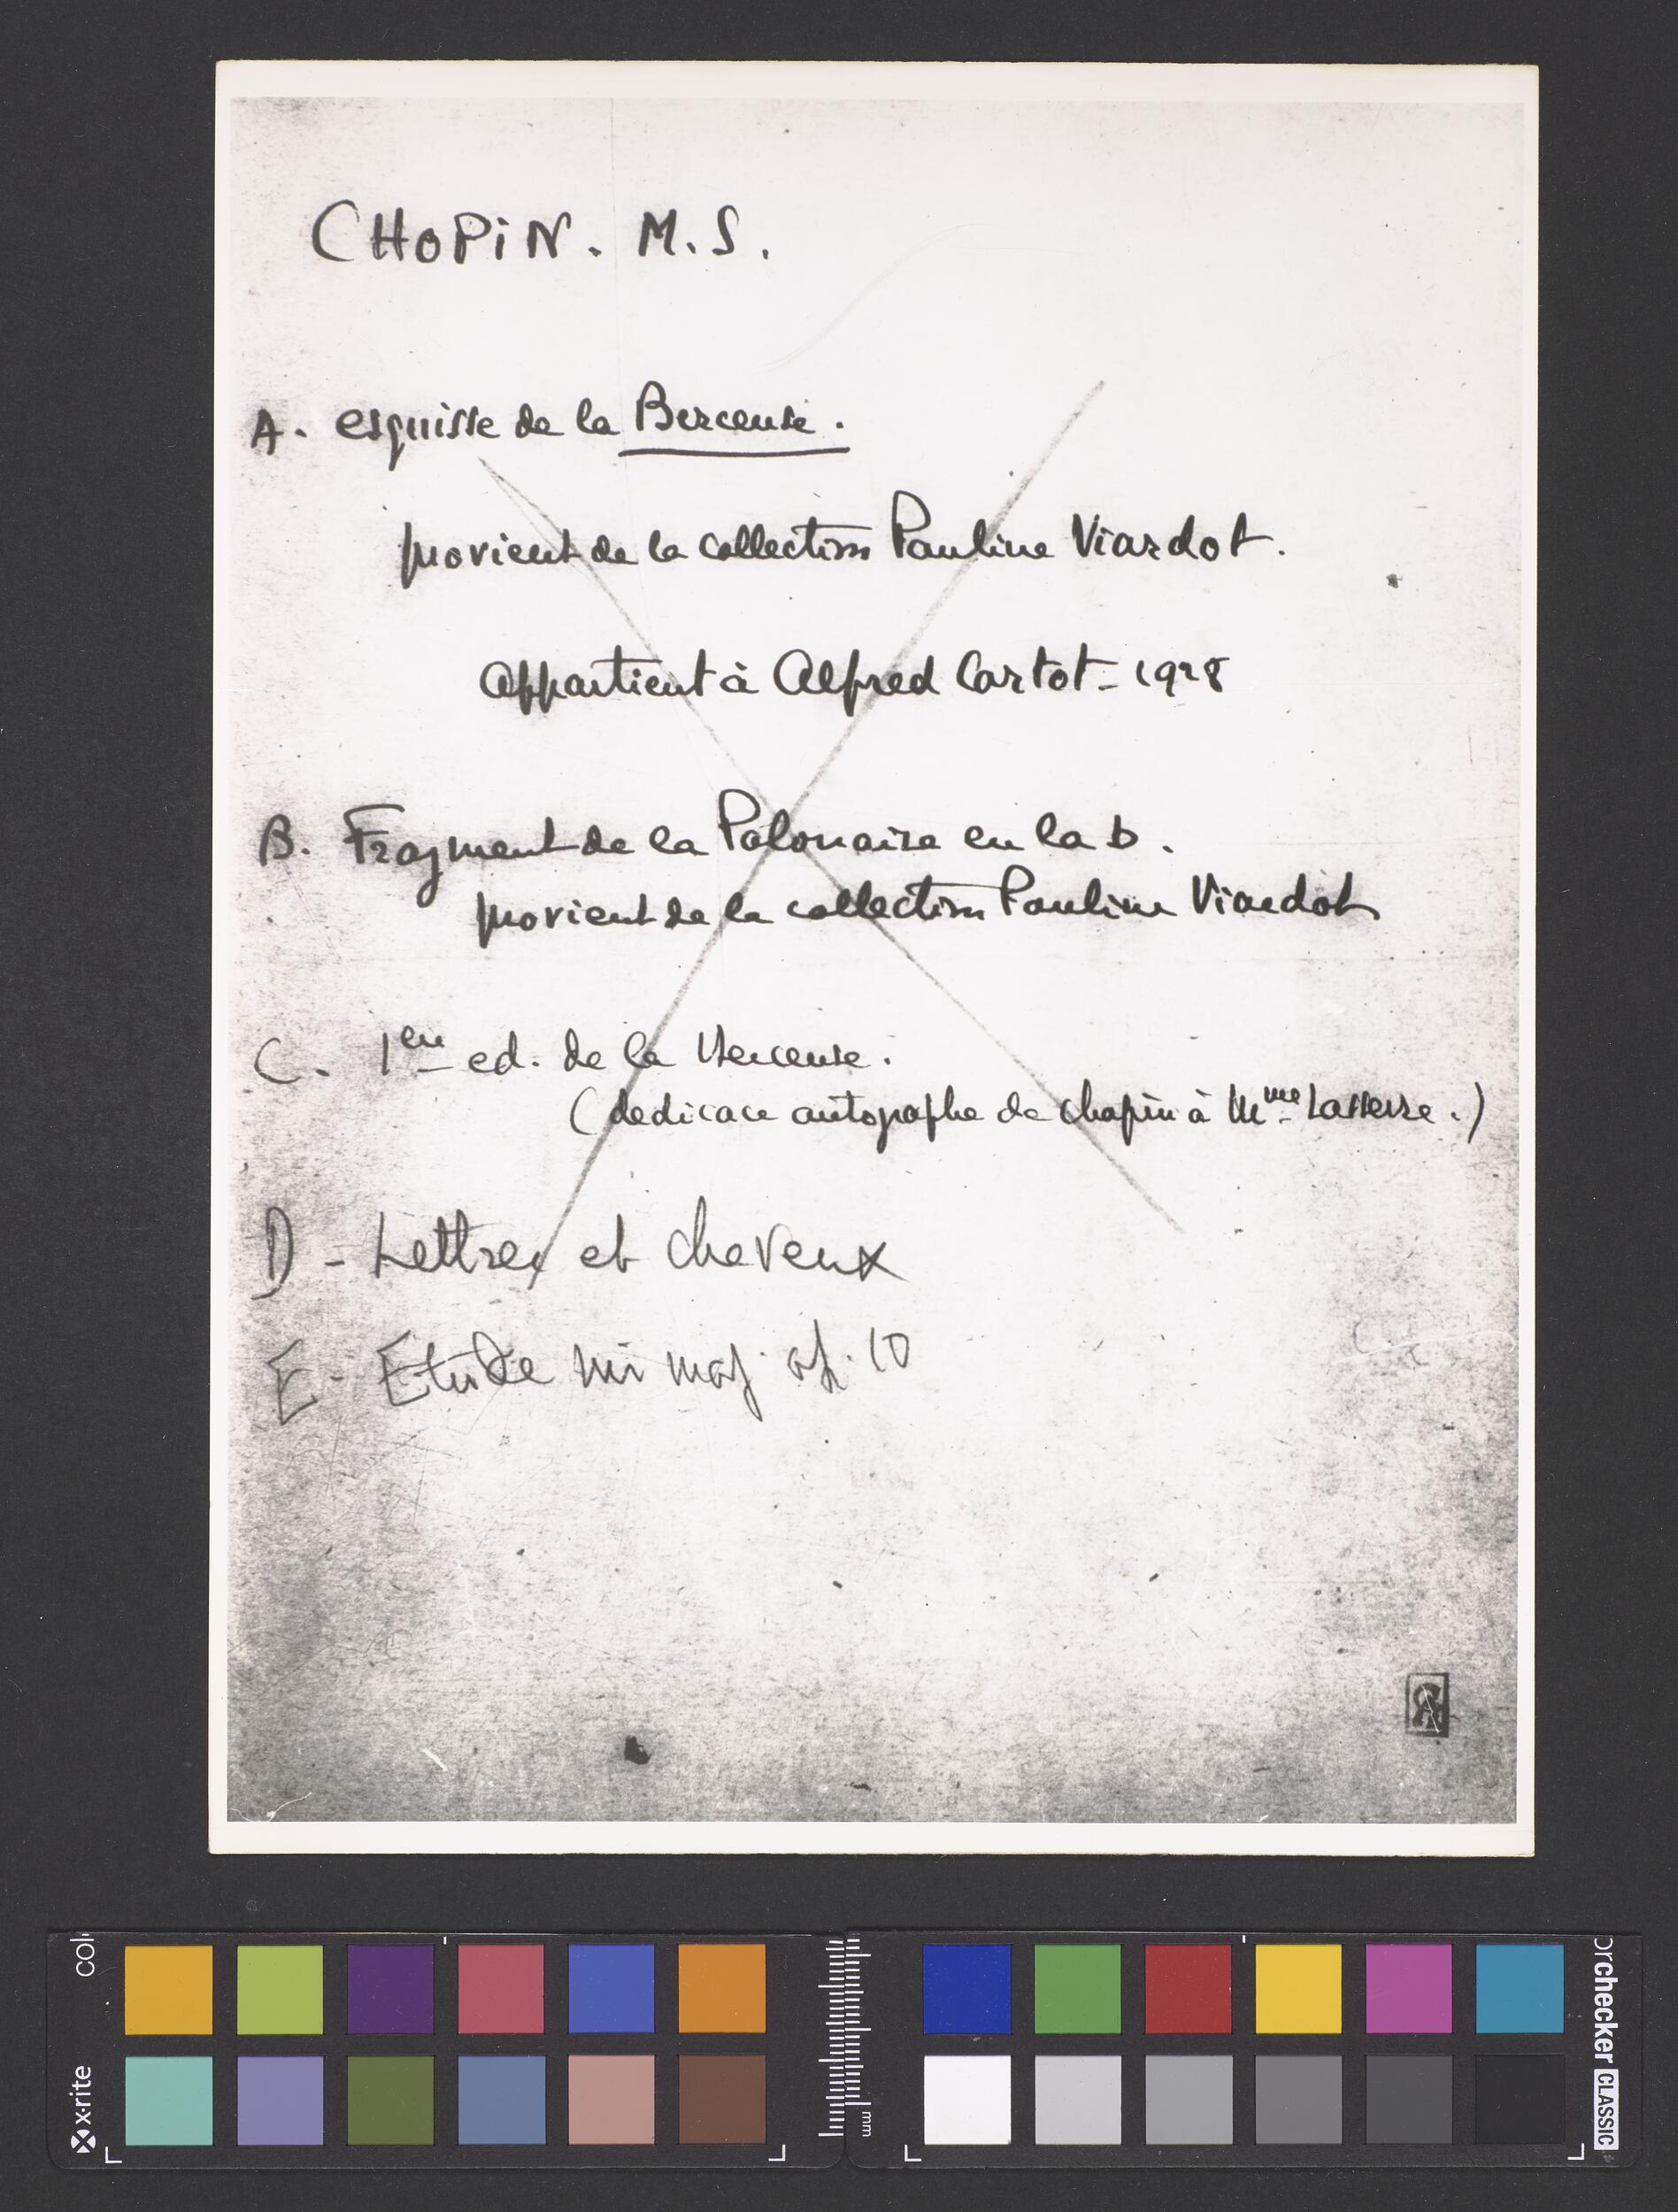 CHOPIN. M.S.
A. esquisse de la Berceuse.
provient de la collection Pauline Viardot.
appartient à Alfred Cortot - 1928
B. Fragment de la Polonaise en la b.
provient de la collection Pauline Viardot
C. 1ere ed. de la Berceuse.
(dedicace autographe de Chopin à Mme Lasserre.)
D - Lettres et cheveux
E - Etude mi maj. op. 10
x-rite
col
mm
orchecker CLASSIC